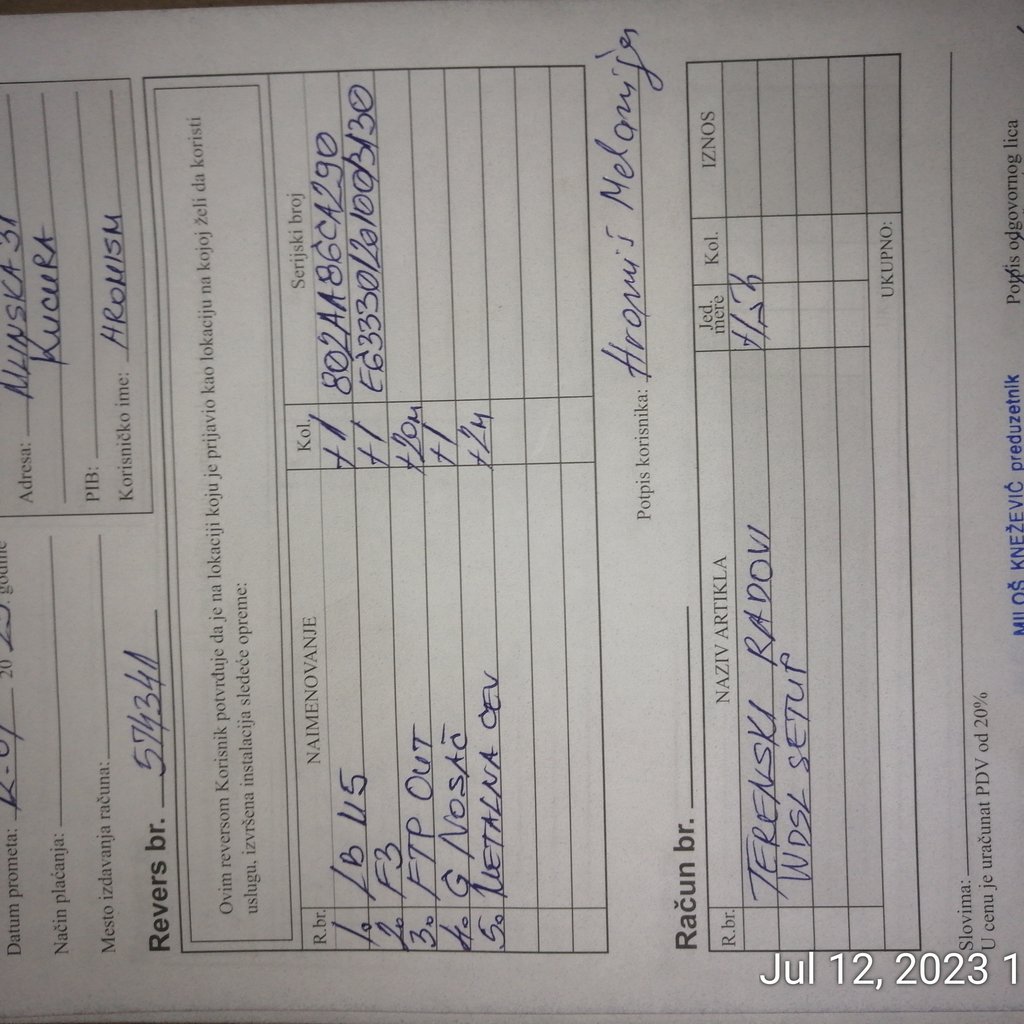 Datum prometa: 20 23. godine
Način plaćanja:
Mesto izdavanja računa:
Adresa: MLINSKA 31
KUCURA
PIB:
Korisničko ime: HROMISM
Revers br. 574341
Ovim reversom Korisnik potvrđuje da je na lokaciji koju je prijavio kao lokaciju na kojoj želi da koristi
uslugu, izvršena instalacija sledeće opreme:
R.br. NAIMENOVANJE Kol. Serijski broj
1. LB +1 802AA86CA290
2. F3 +1 EG33330/20/1001/3130
3. FTP OUT +20m
4. G NOSAČ +1
5. METALNA CEV +2m
Potpis korisnika: Hromiš Melanija
Račun br.
R.br. NAZIV ARTIKLA Jed. mere Kol. IZNOS
TERENSKI RADOVI
WDSL SETUP
UKUPNO:
Slovima:
U cenu je uračunat PDV od 20%
MILOŠ KNEŽEVIĆ preduzetnik
Potpis odgovornog lica
Jul 12, 2023 1